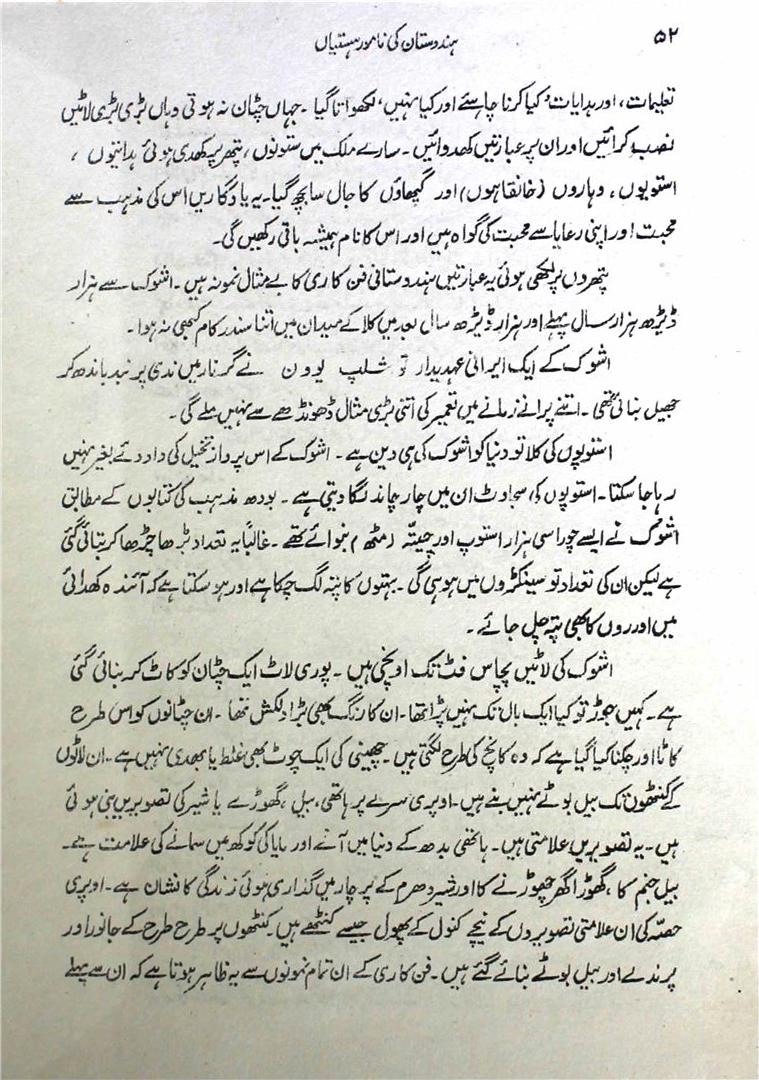 ۵۲
ہندوستان کی نامور ہستیاں
تعلیمات، اور ہدایات، کیا کرنا چاہئے اور کیا نہیں، لکھواتا گیا۔ جہاں چٹان نہ ہوتی وہاں بڑی بڑی لاٹیں
نصب کرائیں اور ان پر عبارتیں کھدوائیں۔ سارے ملک میں ستونوں، پتھر پر کھدی ہوئی ہدایتوں،
استوپوں، وہاروں (خانقاہوں) اور گپھاؤں کا جال سا بچھ گیا۔ یہ یادگاریں اس کی مذہب سے
محبت اور اپنی رعایا سے محبت کی گواہ ہیں اور اس کا نام ہمیشہ باقی رکھیں گی۔
پتھروں پر لکھی ہوئی یہ عبارتیں ہندوستانی فن کاری کا بے مثال نمونہ ہیں۔ اشوک سے ہزار
ڈیڑھ ہزار سال پہلے اور ہزار ڈیڑھ سال بعد میں کلا کے میدان میں اتنا سندر کام کبھی نہ ہوا۔
اشوک کے ایک ایرانی عہدیدار تو شلپ یوون نے گرنار میں ندی پر بند باندھ کر
جھیل بنائی تھی۔ اتنے پرانے زمانے میں تعمیر کی اتنی بڑی مثال ڈھونڈھے سے نہیں ملے گی۔
استوپوں کی کلا تو دنیا کو اشوک کی ہی دین ہے۔ اشوک کے اس پرواز تخیل کی داد دئے بغیر نہیں
رہا جا سکتا۔ استوپوں کی سجاوٹ ان میں چار چاند لگا دیتی ہے۔ بودھ مذہب کی کتابوں کے مطابق
اشوک نے ایسے چوراسی ہزار استوپ اور چیتیہ (مٹھ) بنوائے تھے۔ غالباً یہ تعداد بڑھا چڑھا کر بتائی گئی
ہے لیکن ان کی تعداد تو سینکڑوں میں ہو سی گی۔ بہتوں کا پتہ لگ چکا ہے اور ہو سکتا ہے کہ آئندہ کھدائی
میں اور روں کا بھی پتہ چل جائے۔
اشوک کی لاٹیں پچاس فٹ تک اونچی ہیں۔ پوری لاٹ ایک چٹان کو کاٹ کر بنائی گئی
ہے۔ کہیں جوڑ تو کیا ایک بال تک نہیں پڑا تھا۔ ان کا رنگ بھی بڑا دلکش تھا۔ ان چٹانوں کو اس طرح
کاٹا اور چکنا کیا گیا ہے کہ وہ کانچ کی طرح لگتی ہیں۔ چھینی کی ایک چوٹ بھی غلط یا بھدی نہیں ہے۔ ان لاٹوں
کے کنٹھوں تک بیل بوٹے نہیں بنے ہیں۔ اوپری سرے پر ہاتھی، بیل، گھوڑے یا شیر کی تصویریں بنی ہوئی
ہیں۔ یہ تصویریں علامتی ہیں۔ ہاتھی بدھ کے دنیا میں آنے اور مایا کی کوکھ میں سمانے کی علامت ہے۔
بیل جنم کا، گھوڑا گھر چھوڑنے کا اور شیر دھرم کے پرچار میں گذاری ہوئی زندگی کا نشان ہے۔ اوپری
حصّہ کی ان علامتی تصویروں کے نیچے کنول کے پھول جیسے کنٹھے ہیں۔ کنٹھوں پر طرح طرح کے جانور اور
پرندے اور بیل بوٹے بنائے گئے ہیں۔ فن کاری کے ان تمام نمونوں سے یہ ظاہر ہوتا ہے کہ ان سے پہلے